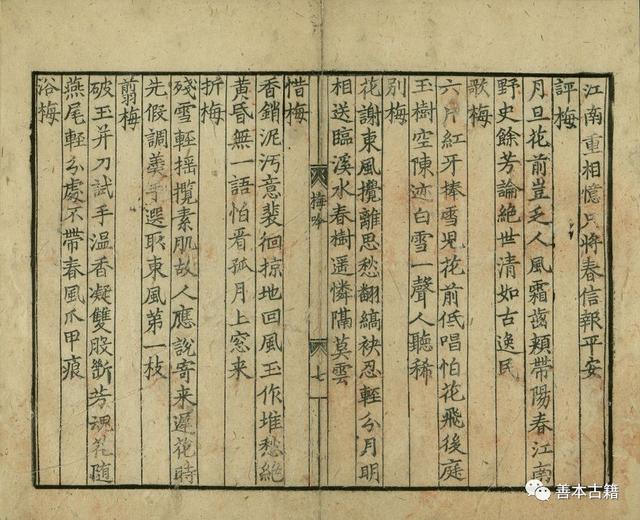 江南重相憶只將春信報平安
評梅
月旦花前豈乏人風霜齒頰帶陽春江南
野史餘芳論絕世清如古逸民
歌梅
六片紅牙捧雪兒花前低唱怕花飛後庭
玉樹空陳迹白雪一聲人聽稀
別梅
花謝東風攪離思愁翻縞袂忍輕分月明
相送臨溪水春樹遥憐隔莫雲
梅吟
七
惜梅
香銷泥汚意裴徊掠地回風玉作堆愁絶
黃昏無一語怕看孤月上窓来
折梅
殘雪輕揺攬素肌故人應說寄来遲花時
先假調羹手選取東風第一枝
翦梅
破玉并刀試手溫香凝雙股斷芳魂花随
燕尾輕分處不帶春風爪甲痕
浴梅
善本古籍